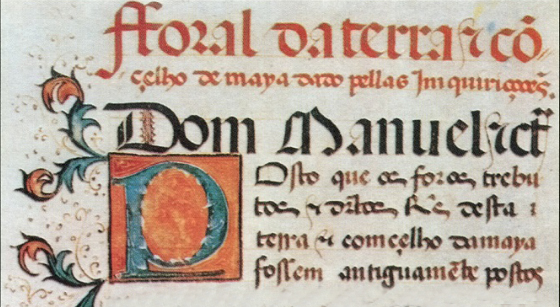 fforal da terra ⁊ cõ
çelho de maya dado pellas Imquiriçoões.
Dom Manuel ⁊ct̃
Posto que os foros trebu
tos ⁊ dr̃tos Rs̃ desta
terra ⁊ comçelho da maya
fossem antiguamẽte postos